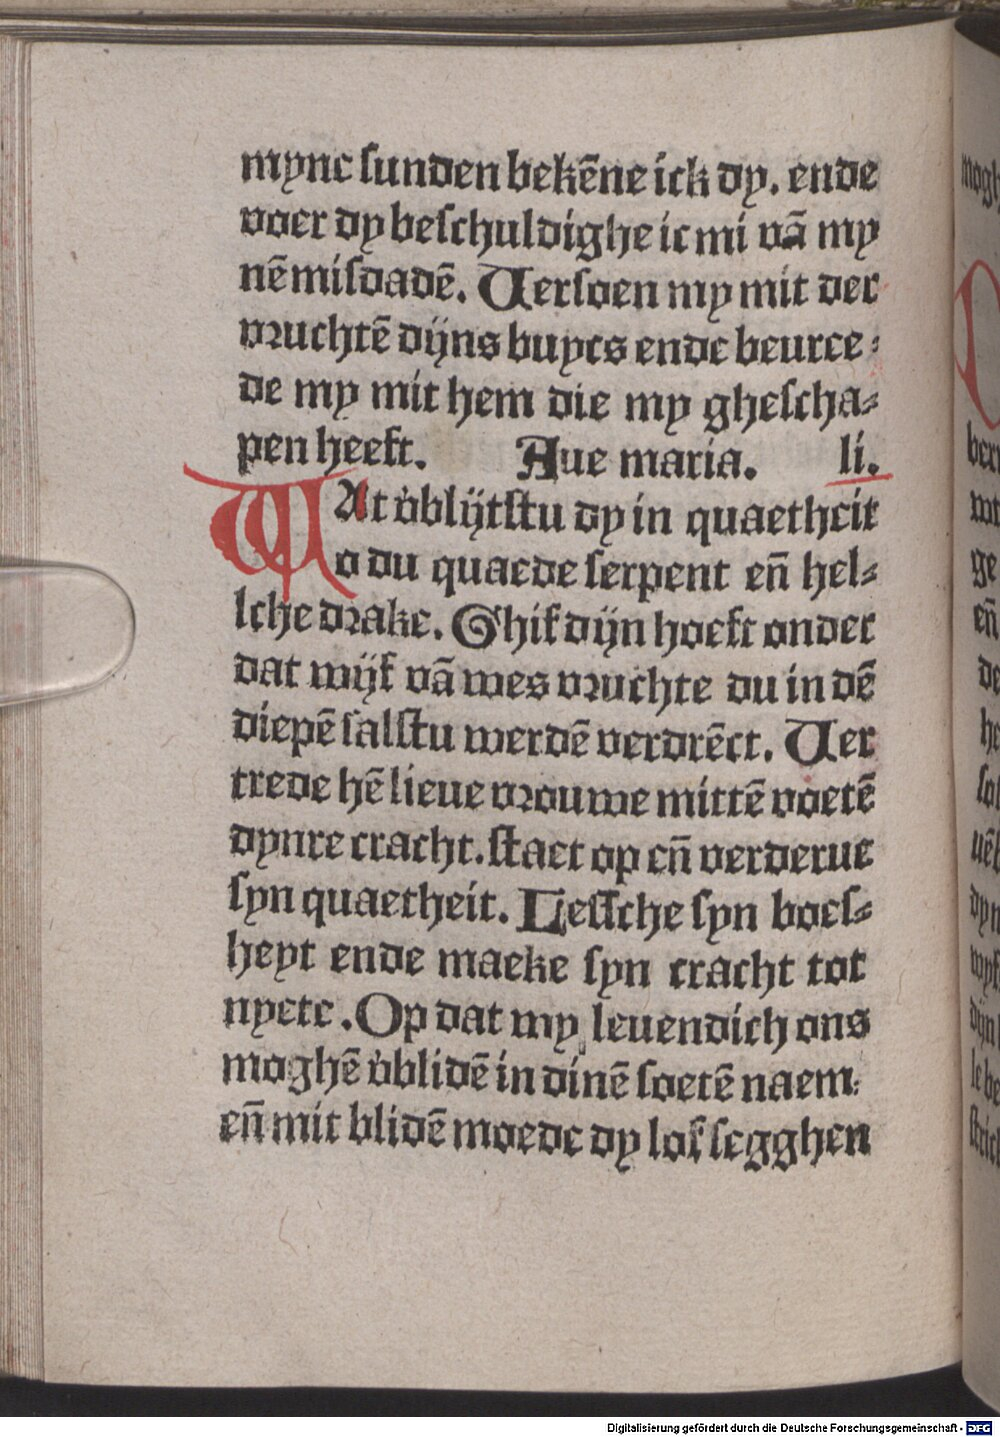 mync sunden bekēne ick dy. ende
voer dy beschuldighe ic mi vā my
nē misdadē. Versoen my mit der
vruchtē dijns buycs ende beuree⸗
de my mit hem die my ghescha⸗
pen heeft. Aue maria. li.
WAt v̓blijtstu dy in quaetheit
o du quaede serpent en̄ hel⸗
lche drake. Ghif dijn hoeft onder
dat wijf vā wes vruchte du in dē
diepē salstu werdē verdrēct. Ver
trede hē lieue vrouwe mittē voetē
dynre cracht. staet op en̄ verderue
syn quaetheit. Lessche syn boes⸗
heyt ende maeke syn cracht tot
nyete. Op dat wy leuendich ons
moghē v̓blidē in dinē soetē naem:
en̄ mit blidē moede dy lof segghen
mogh
en̄
de
dyn
Digitalisierung gefördert durch die Deutsche Forschungsgemeinschaft - DFG